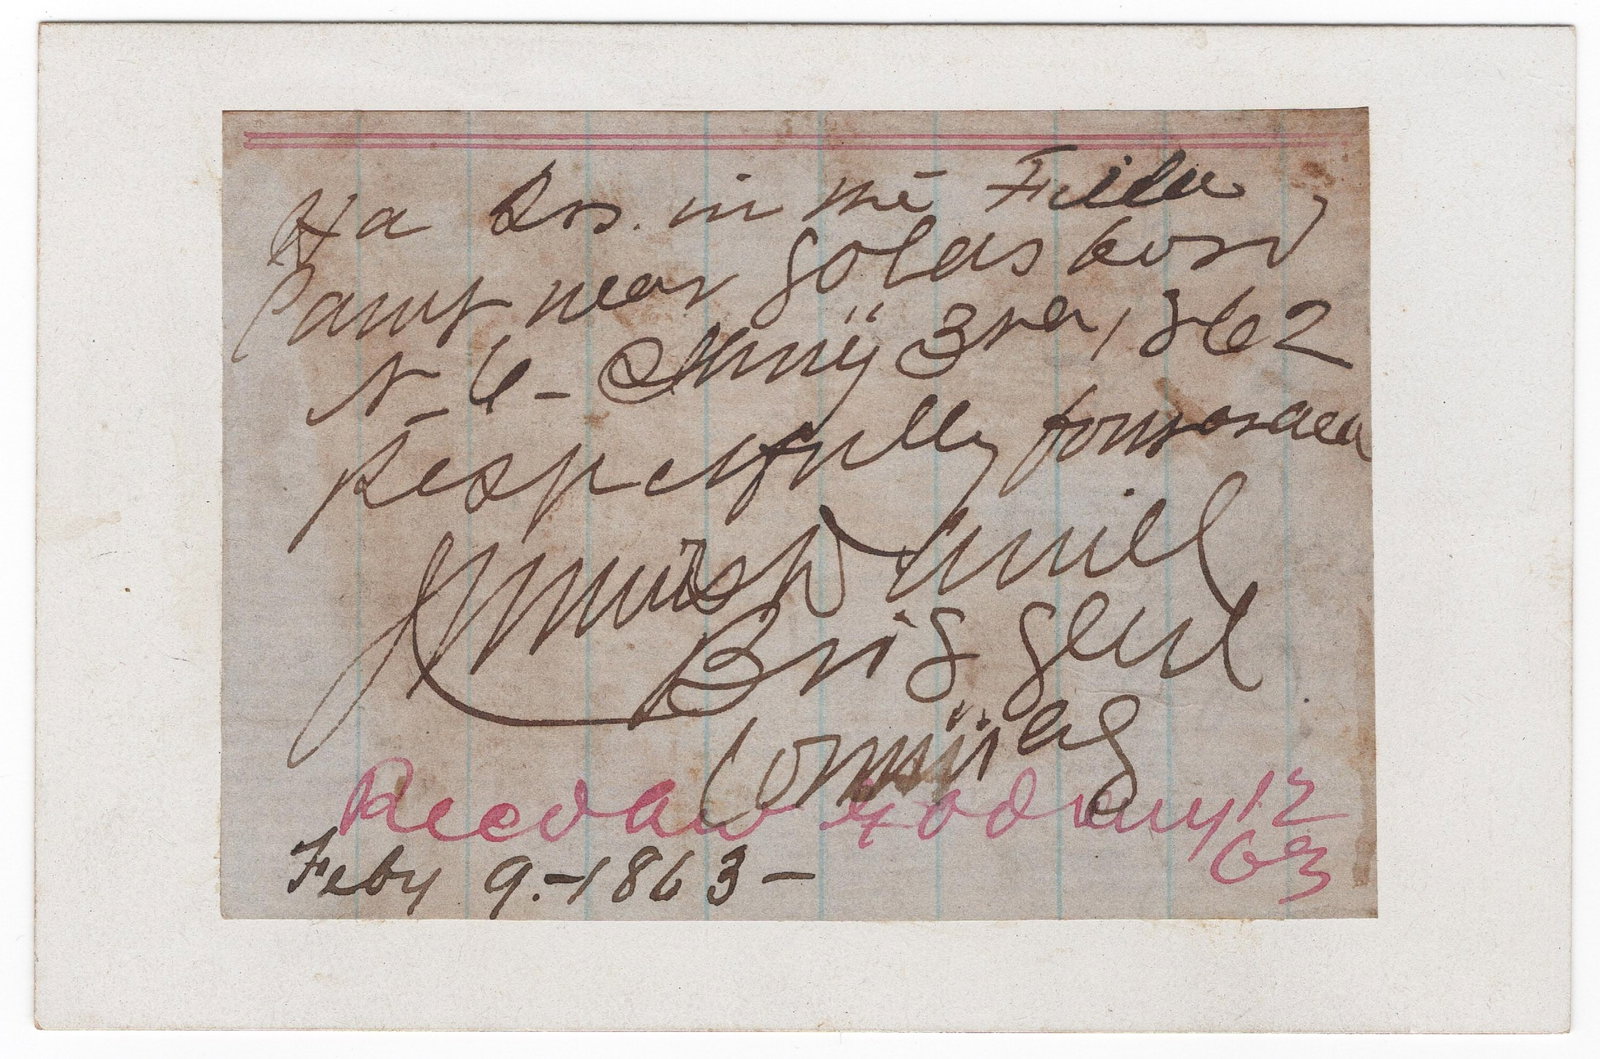 Hd Qrs. in the Field,
Camp near Goldsboro
N. C. - Jany 3rd, 1862
Respectfully forwarded
Junius Daniel
Brig Genl
Comdg
Recd AIGO Feby 12
63
Feby 9.-1863-